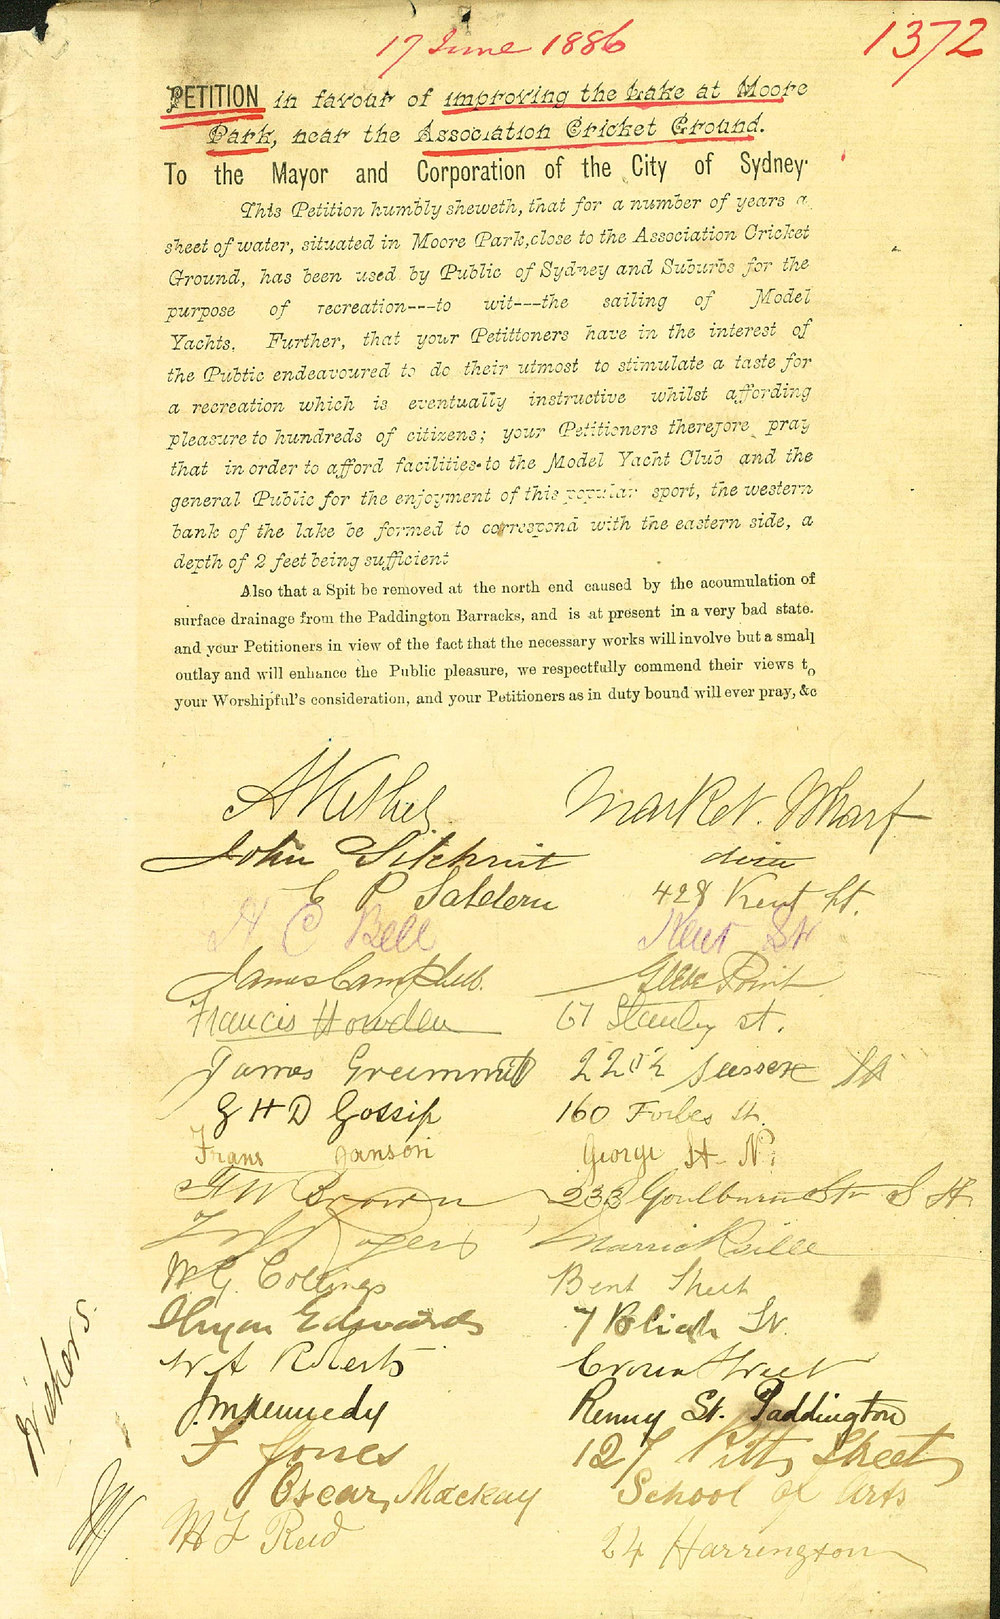 17 June 1886
1372
PETITION in favour of improving the Lake at Moore
Park, near the Association Cricket Ground.
To the Mayor and Corporation of the City of Sydney.
This Petition humbly sheweth, that for a number of years a
sheet of water, situated in Moore Park, close to the Association Cricket
Ground, has been used by Public of Sydney and Suburbs for the
purpose of recreation---to wit---the sailing of Model
Yachts. Further, that your Petittoners have in the interest of
the Pubtic endeavoured to do their utmost to stimulate a taste for
a recreation which is eventually instructive whilst affording
pleasure to hundreds of citizens; your Petitioners therefore pray
that in order to afford facilities to the Model Yacht Club and the
general Public for the enjoyment of this popular sport, the western
bank of the lake be formed to correspond with the eastern side, a
depth of 2 feet being sufficient
Also that a Spit be removed at the north end caused by the acoumulation of
surface drainage from the Paddington Barracks, and is at present in a very bad state.
and your Petitioners in view of the fact that the necessary works will involve but a small
outlay and will enhance the Public pleasure, we respectfully commend their views to
your Worshipful's consideration, and your Petitioners as in duty bound will ever pray, &c
Market Wharf
John Gilchrist
E P Saldern 428 Kent St.
H C Bell Kent St
James Campbell Glebe Point
Francis Howden 67 Stanley st.
James 220½ Sussex St
G H D Gossip 160 Forbes St.
Frans Janson George St N.
F W Brown 233 Goulburn Str S H
Rogers Marrickville
W G Collings Bent Street
Edwards 7 Bligh St.
W A Roberts Crown Street
J. M Kennedy Renny St. Paddington
F Jones 127 Pitt Street
Oscar Mackay School of Arts
W F Reid 24 Harrington
Vickers